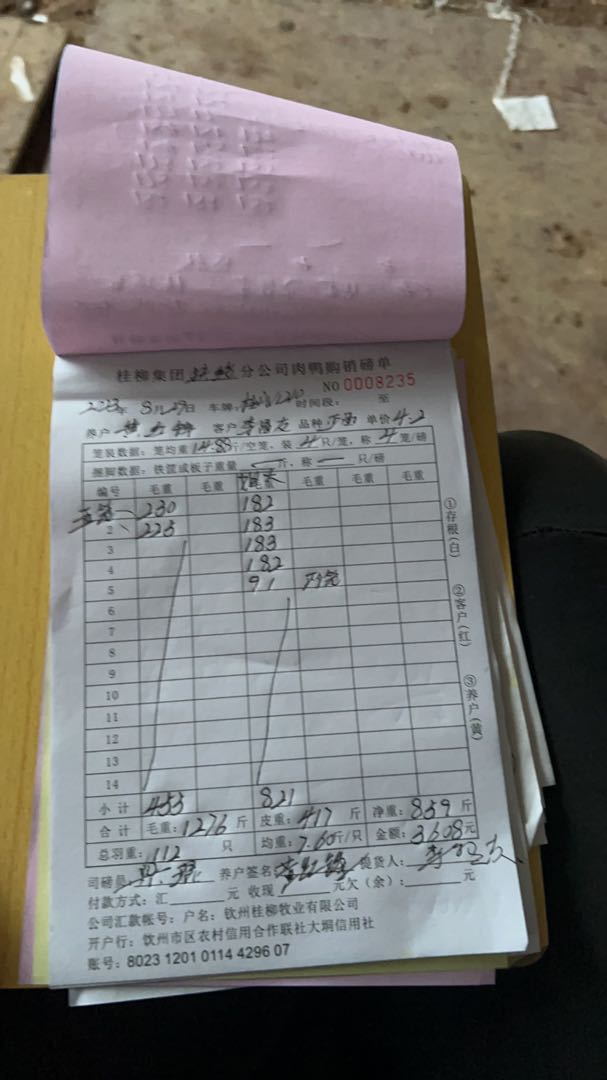 桂柳集团 分公司肉鸭购销磅单
NO 0008235
2023年 8月29日 车牌: 时间段: 至
养户 客户 品种 单价4.2
笼装数据: 笼均重14.88斤/空笼、装4只/笼, 称4笼/磅
捆脚数据: 铁筐或板子重量 一 斤、称 一 只/磅
编号 毛重 毛重 毛重 毛重 毛重
1 230 182
2 225 183
3 183
4 182
5 91
6
7
8
9
10
11
12
13
14
小计 455 821
合计 毛重: 1276 斤 皮重: 417 斤 净重: 859 斤
总羽重: 112 只 均重: 7.60斤/只 金额: 3608元
司磅员 养户签名 提货人:
付款方式: 汇 元 收现 元欠(余): 元
公司汇款帐号: 户名: 钦州桂柳牧业有限公司
开户行: 钦州市区农村信用合作联社大垌信用社
账号: 8023 1201 0114 4296 07
①存根(白)
②客户(红)
③养户(黄)